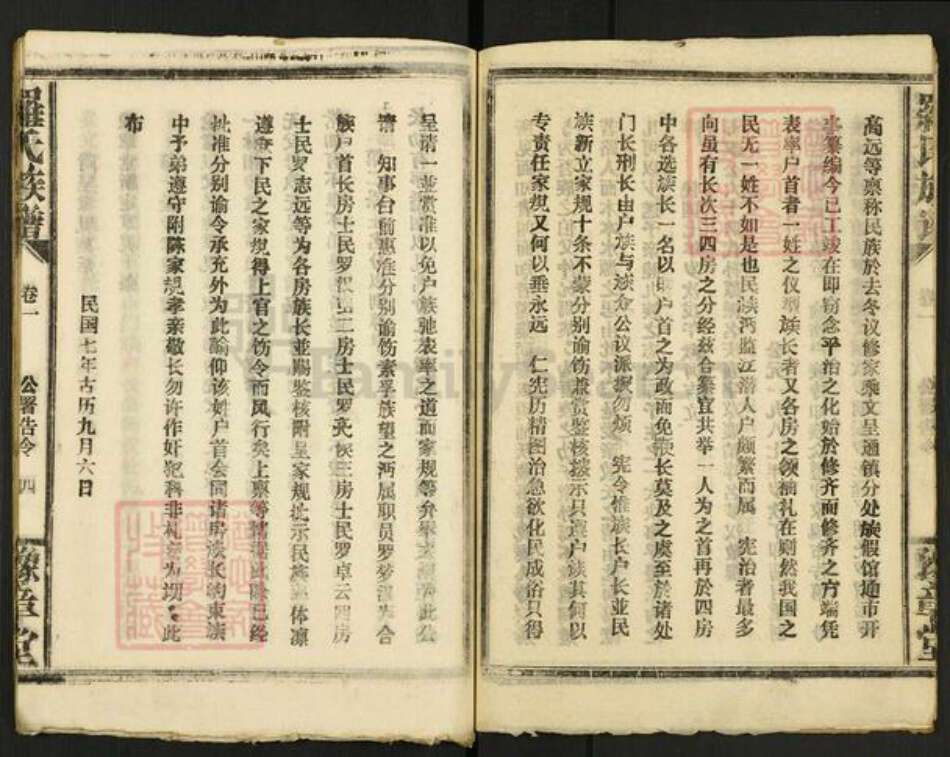 高远等禀称民族於去冬议修家乘文呈通镇分处族假馆通市开
纂编今已工竣在即窃念平治之化始於修齐而修齐之方端凭
表率户首者一姓之仪型族长者又各房之领袖礼在则然我国之
民无一姓不如是也民族沔监江潜人户颇繁而属 宪治者最多
向虽有长次三四房之分经兹合纂宜共举一人为之首再於四房
中各选族长一名以 户首之为政而免 长莫及之虞至於诸处
门长刑长由户族与族众公议派 勿烦 宪令惟族长户长並民
族新立家规十条不蒙分别谕饬兼赏鉴核 示只 户族其何以
专责任家规又何以垂永远 仁宪历精图治急欲化民成俗只得
呈请一並赏准以免户族驰表率之道而家规等弁 此公
请 知事台前惠准分别谕饬素孚族望之沔属职员罗梦 合
族户首长房士民罗汉 二房士民罗 三房士民罗卓云四房
士民罗志远等为各房族长並赐鉴核附呈家规批示民族 体凛
遵 下民之家规得上官之饬令而风行矣上禀等情 此除已经
批准分别谕令承充外为此谕仰该姓户首会同诸房族长约束族
中子弟遵守附陈家规孝亲敬长勿许作奸犯科非礼 为切 此
布
民国七年古历九月六日
羅氏族譜
卷一
公署告令
四
豫章堂